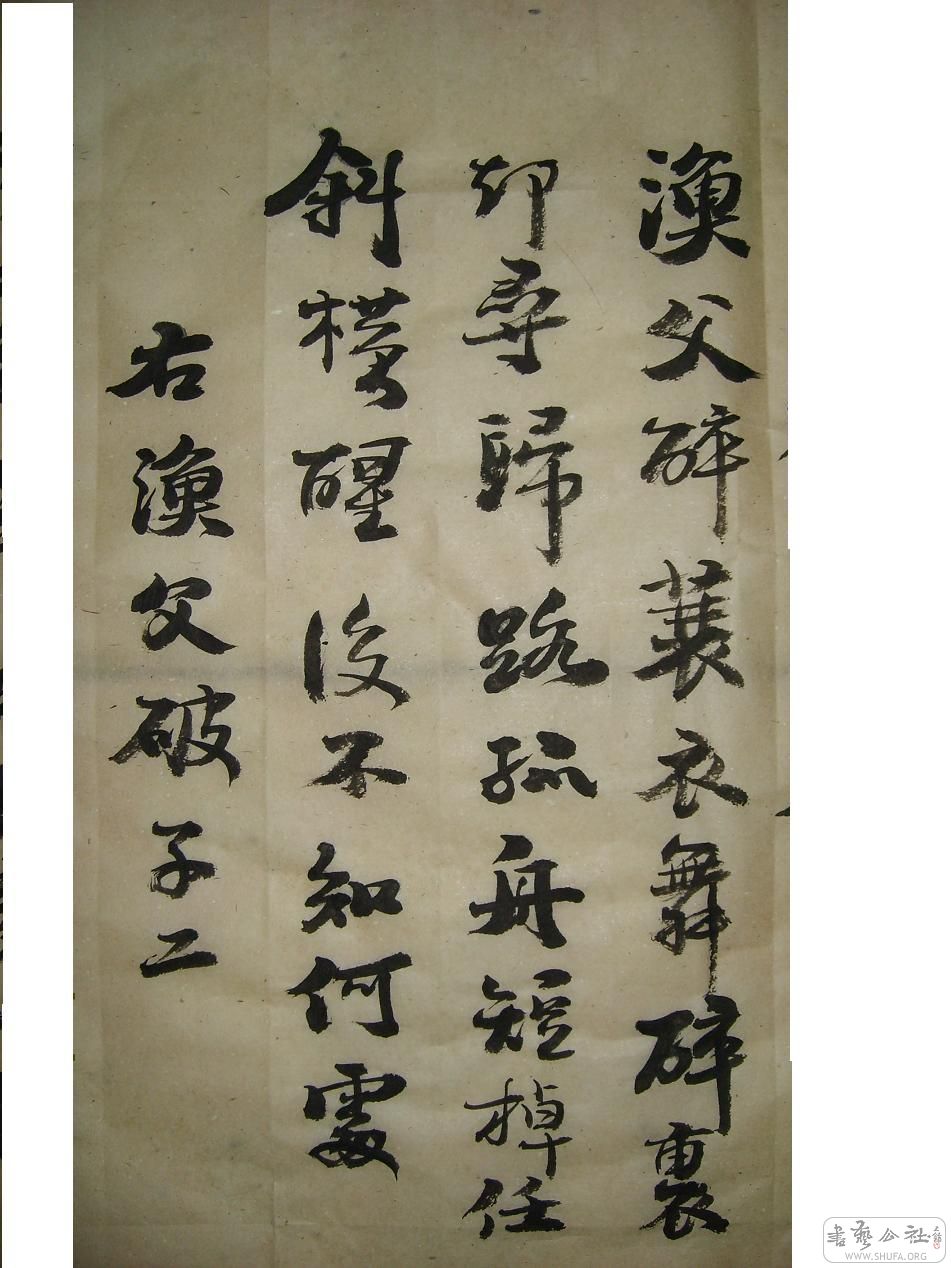 漁父醉蓑衣舞醉裏
却尋歸路孤舟短棹任
斜橫醒後不知何處
右漁父破子二
書藝公社
WWW.SHUFA.ORG